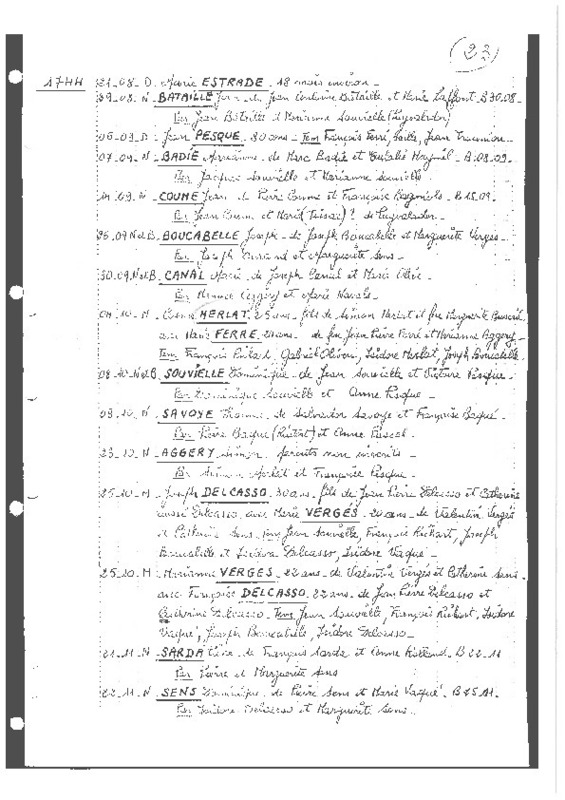 (23)
1744 31-08-D. Marie ESTRADE - 18 mois environ -
29-08-N - BATAILLE Jean - de Jean Antoine Bataille et Marie Laffont - B 30.08 -
Par Jean Bataille et Marianne Souvielle (Puyvalador)
06-09-D - Jean PESQUE - 80 ans - Tem François Ferré, Jean
07-09-N - BADIE Marianne - de Marc Badie et Eulalie - B.08.09 -
Par Jacques Souvielle et Marianne Souvielle
-09-N - COUME Jean - de Pierre Coume et Françoise - B 15.09 -
Par Jean Coume et Marie ( )? de Puyvalador -
-09 N et B. BOUCABELLE Joseph - de Joseph Boucabelle et Marguerite Verges -
Par Joseph et Marguerite Sens -
30.09 N et B. CANAL Marie - de Joseph Canal et Marie
Par et Marie
-10-M - MERLAT, 25 ans - fils de Simon Merlat et feu Marguerite
avec Marie FERRE - ans - de feu Jean Pierre Ferré et Marianne Aggery -
Tem François , Gabriel , Isidore Merlat, Joseph Boucabelle
08-10-N et B SOUVIELLE Dominique - de Jean Souvielle et Victoire Pesque -
Par Dominique Souvielle et Anne Pesque -
09-10-N - SAVOYE Thomas - de Salvador Savoye et Françoise Baqué -
Par Pierre Baque ( ) et Anne Pascal -
23-10-N - AGGERY Simon - parents non inscrits -
Par Simon Merlat et Françoise Pesque -
25-10-M - Joseph DELCASSO - 30 ans - fils de Jean Pierre Delcasso et Catherine
Delcasso avec Marie VERGES - ans - de Valentin Vergés
et Catherine Sens - Tem Jean Souvielle, François Richart, Joseph
Boucabelle et Isidore Delcasso, Isidore Vaqué -
25-10-M - Marianne VERGES - 22 ans - de Valentin Vergés et Catherine Sens -
avec Françoise DELCASSO - 22 ans - de Jean Pierre Delcasso et
Catherine Delcasso - Tem Jean Souvielle, François Richart, Isidore
Vaqué, Joseph Boucabelle, Isidore Delcasso -
21-11-N - SARDA Pierre - de François Sarda et Anne - B 22-11
Par Pierre et Marguerite Sens
22-11-N - SENS Dominique - de Pierre Sens et Marie Vaqué - B 25.11 -
Par Isidore Delcasso et Marguerite Sens -